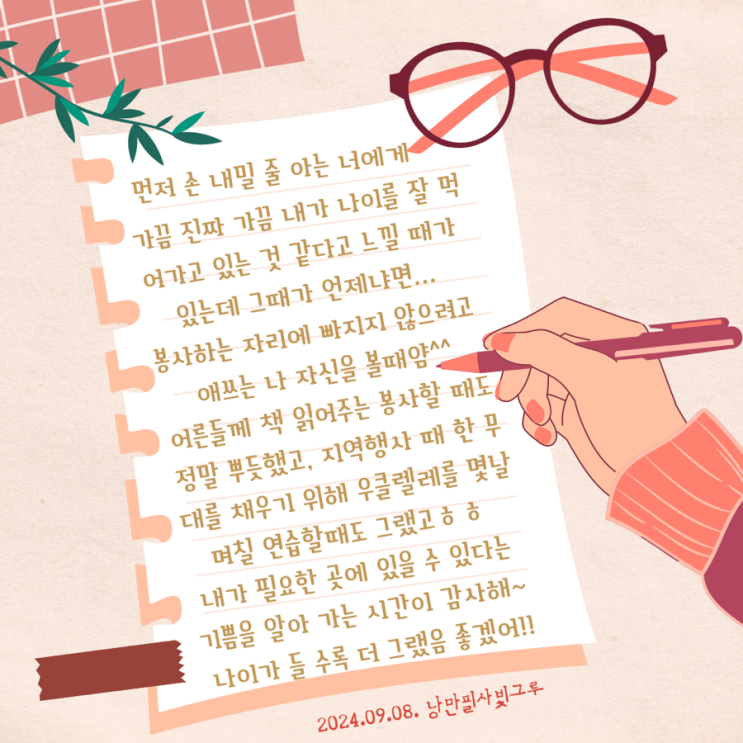 먼저 손 내밀 줄 아는 너에게
가끔 진짜 가끔 내가 나이를 잘 먹
어가고 있는 것 같다고 느낄 때가
있는데 그때가 언제냐면...
봉사하는 자리에 빠지지 않으려고
애쓰는 나 자신을 볼때얌^^
어른들께 책 읽어주는 봉사할 때도
정말 뿌듯했고, 지역행사 때 한 무
대를 채우기 위해 우클렐레를 몇날
며칠 연습할때도 그랬고ㅎㅎ
내가 필요한 곳에 있을 수 있다는
기쁨을 알아 가는 시간이 감사해~
나이가 들 수록 더 그랬음 좋겠어!!
2024.09.08. 낭만필사빛그루